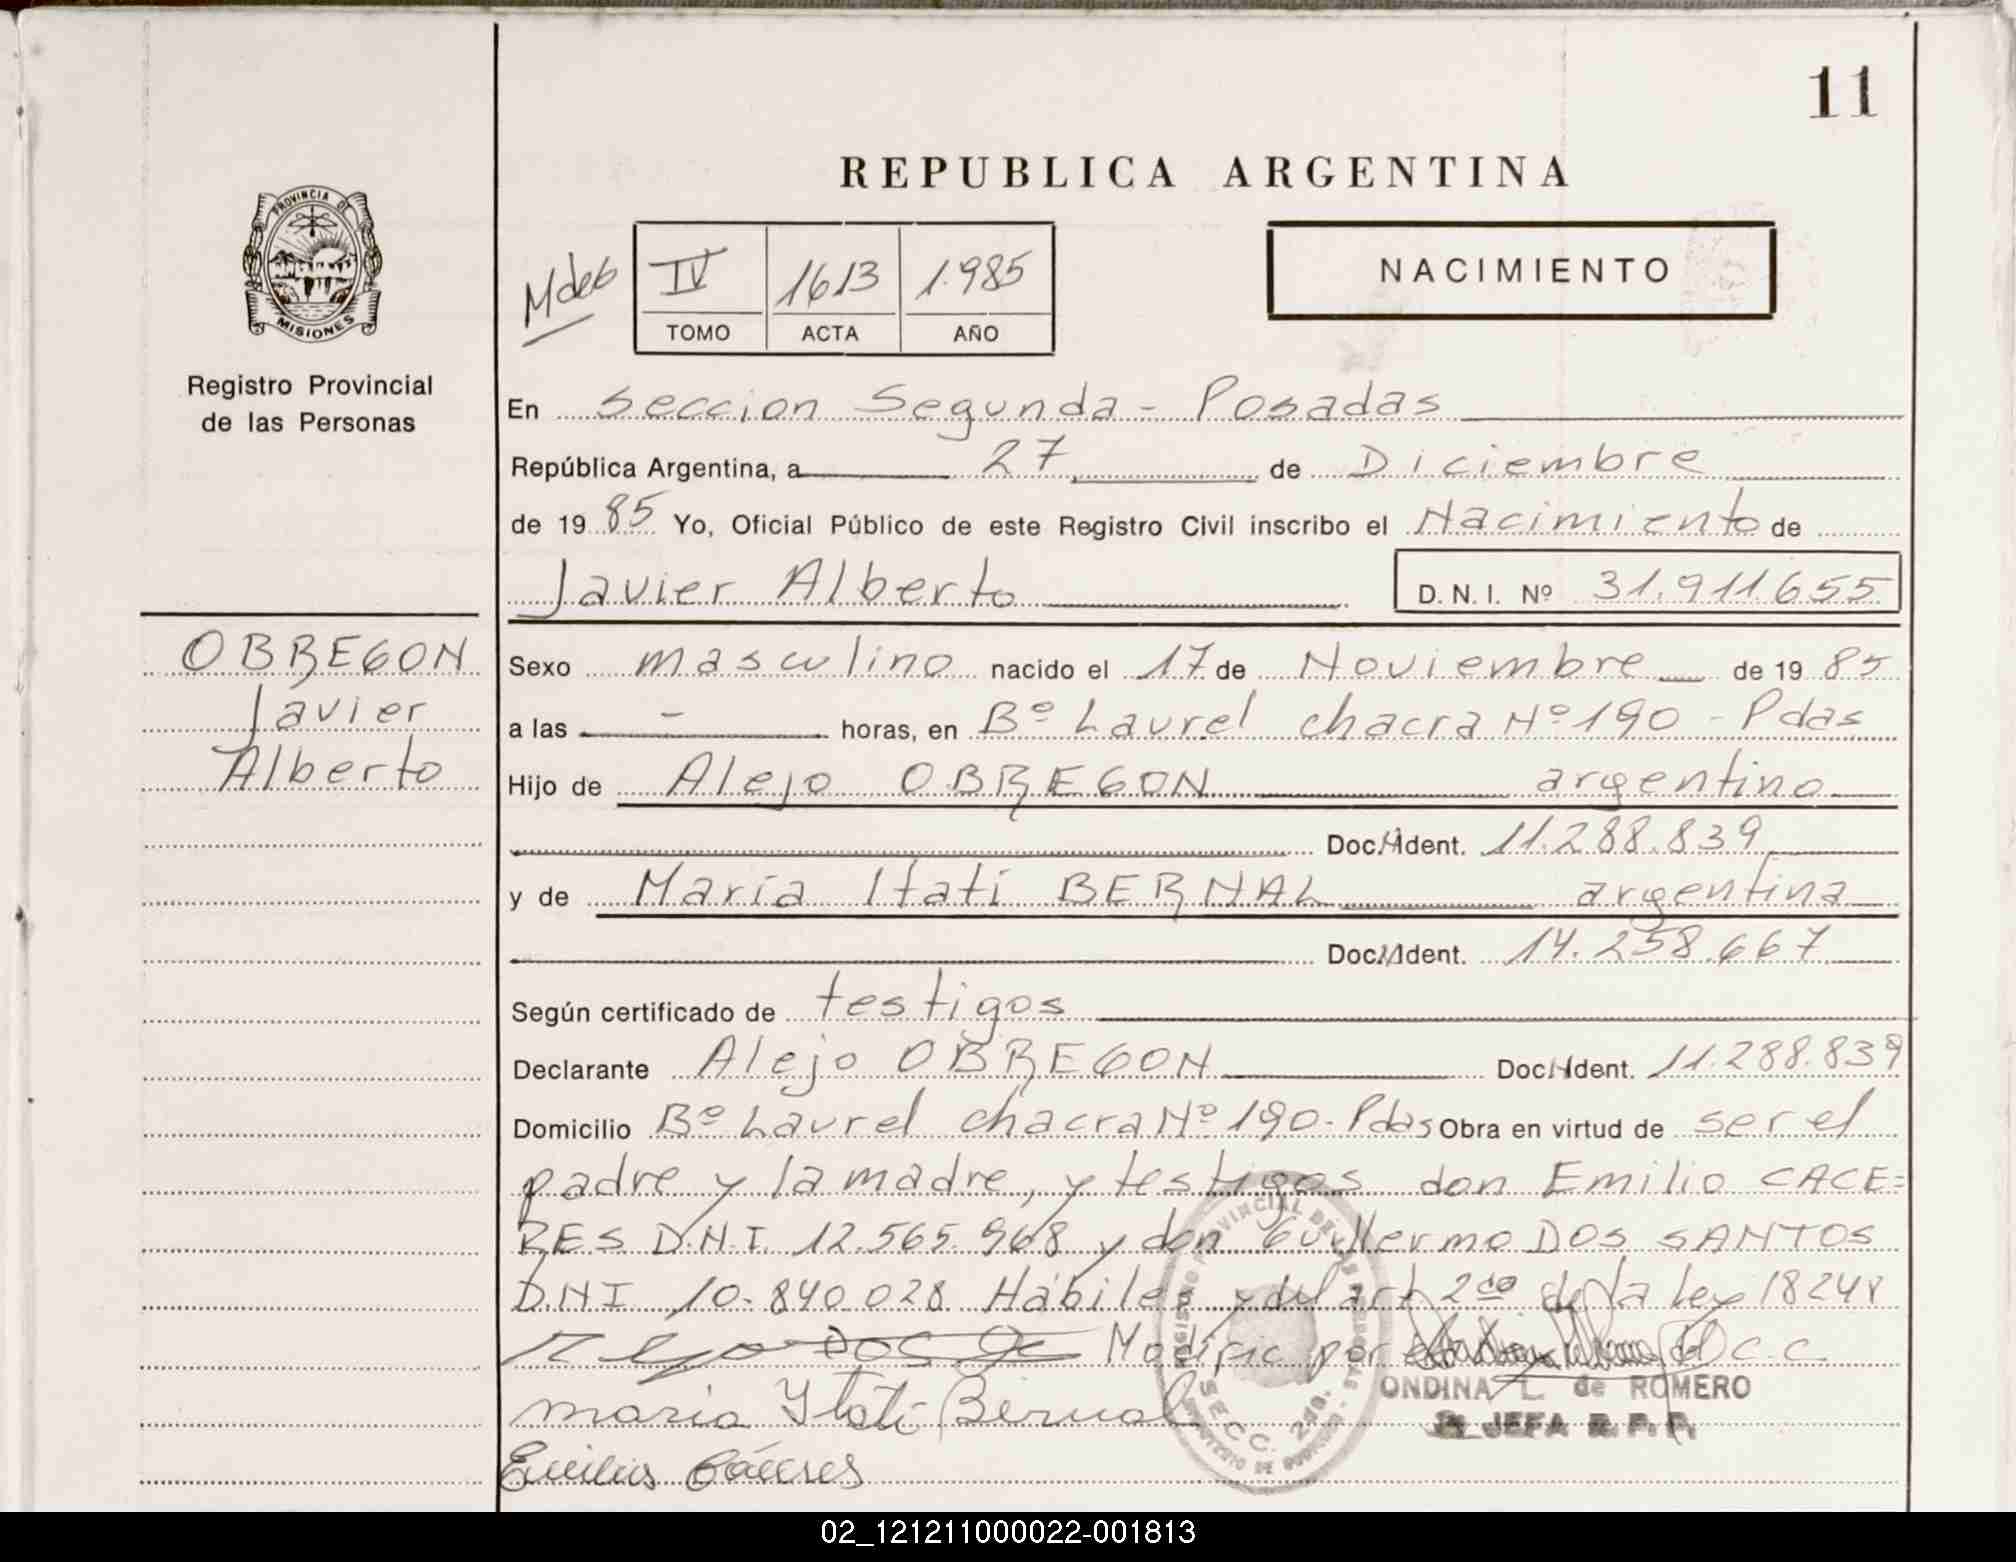 11
REPUBLICA ARGENTINA
PROVINCIA DE
MISIONES
Registro Provincial
de las Personas
IV 1613 1.985
TOMO ACTA AÑO
NACIMIENTO
En Seccion Segunda - Posadas
República Argentina, a 27 de Diciembre
de 19 85 Yo, Oficial Público de este Registro Civil inscribo el Nacimiento de
Javier Alberto D.N.I. Nº 31.911.655
OBREGON
Javier
Alberto
Sexo masculino nacido el 17 de Noviembre de 19 85
a las - horas, en Bº Laurel chacra Nº 190 - Pdas
Hijo de Alejo OBREGON argentino
Doc. Ident. 11.288.839
y de María Itatí BERNAL argentina
Doc. Ident. 14.258.667
Según certificado de testigos
Declarante Alejo OBREGON Doc. Ident. 11.288.839
Domicilio Bº Laurel chacra Nº 190 - Pdas Obra en virtud de ser el
padre y la madre, y testigos don Emilio CACE=
RES D.N.I. 12.565.968 y don Guillermo DOS SANTOS
D.N.I 10.840.028 Hábiles y del art 2do de la Ley 18248
Modific por el D C.C
maria Itatí Bernal
ONDINA L. de ROMERO
JEFA R.P.P.
Emilio Cáceres
REGISTRO PROVINCIAL DE LAS PERSONAS
SECC. 2da.
02_121211000022-001813